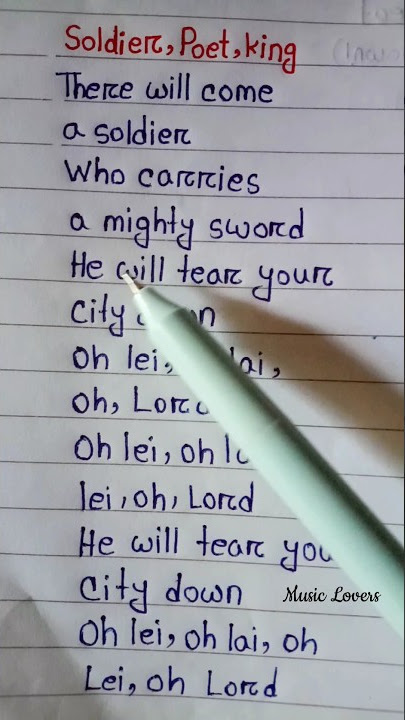 Soldier, Poet, king
There will come
a soldier
Who carries
a mighty sword
He will tear your
City
Oh lei,
oh, Lord
Oh lei, oh
lei, oh, Lord
He will tear
City down
Music Lovers
Oh lei, oh lai, oh
Lei, oh Lord